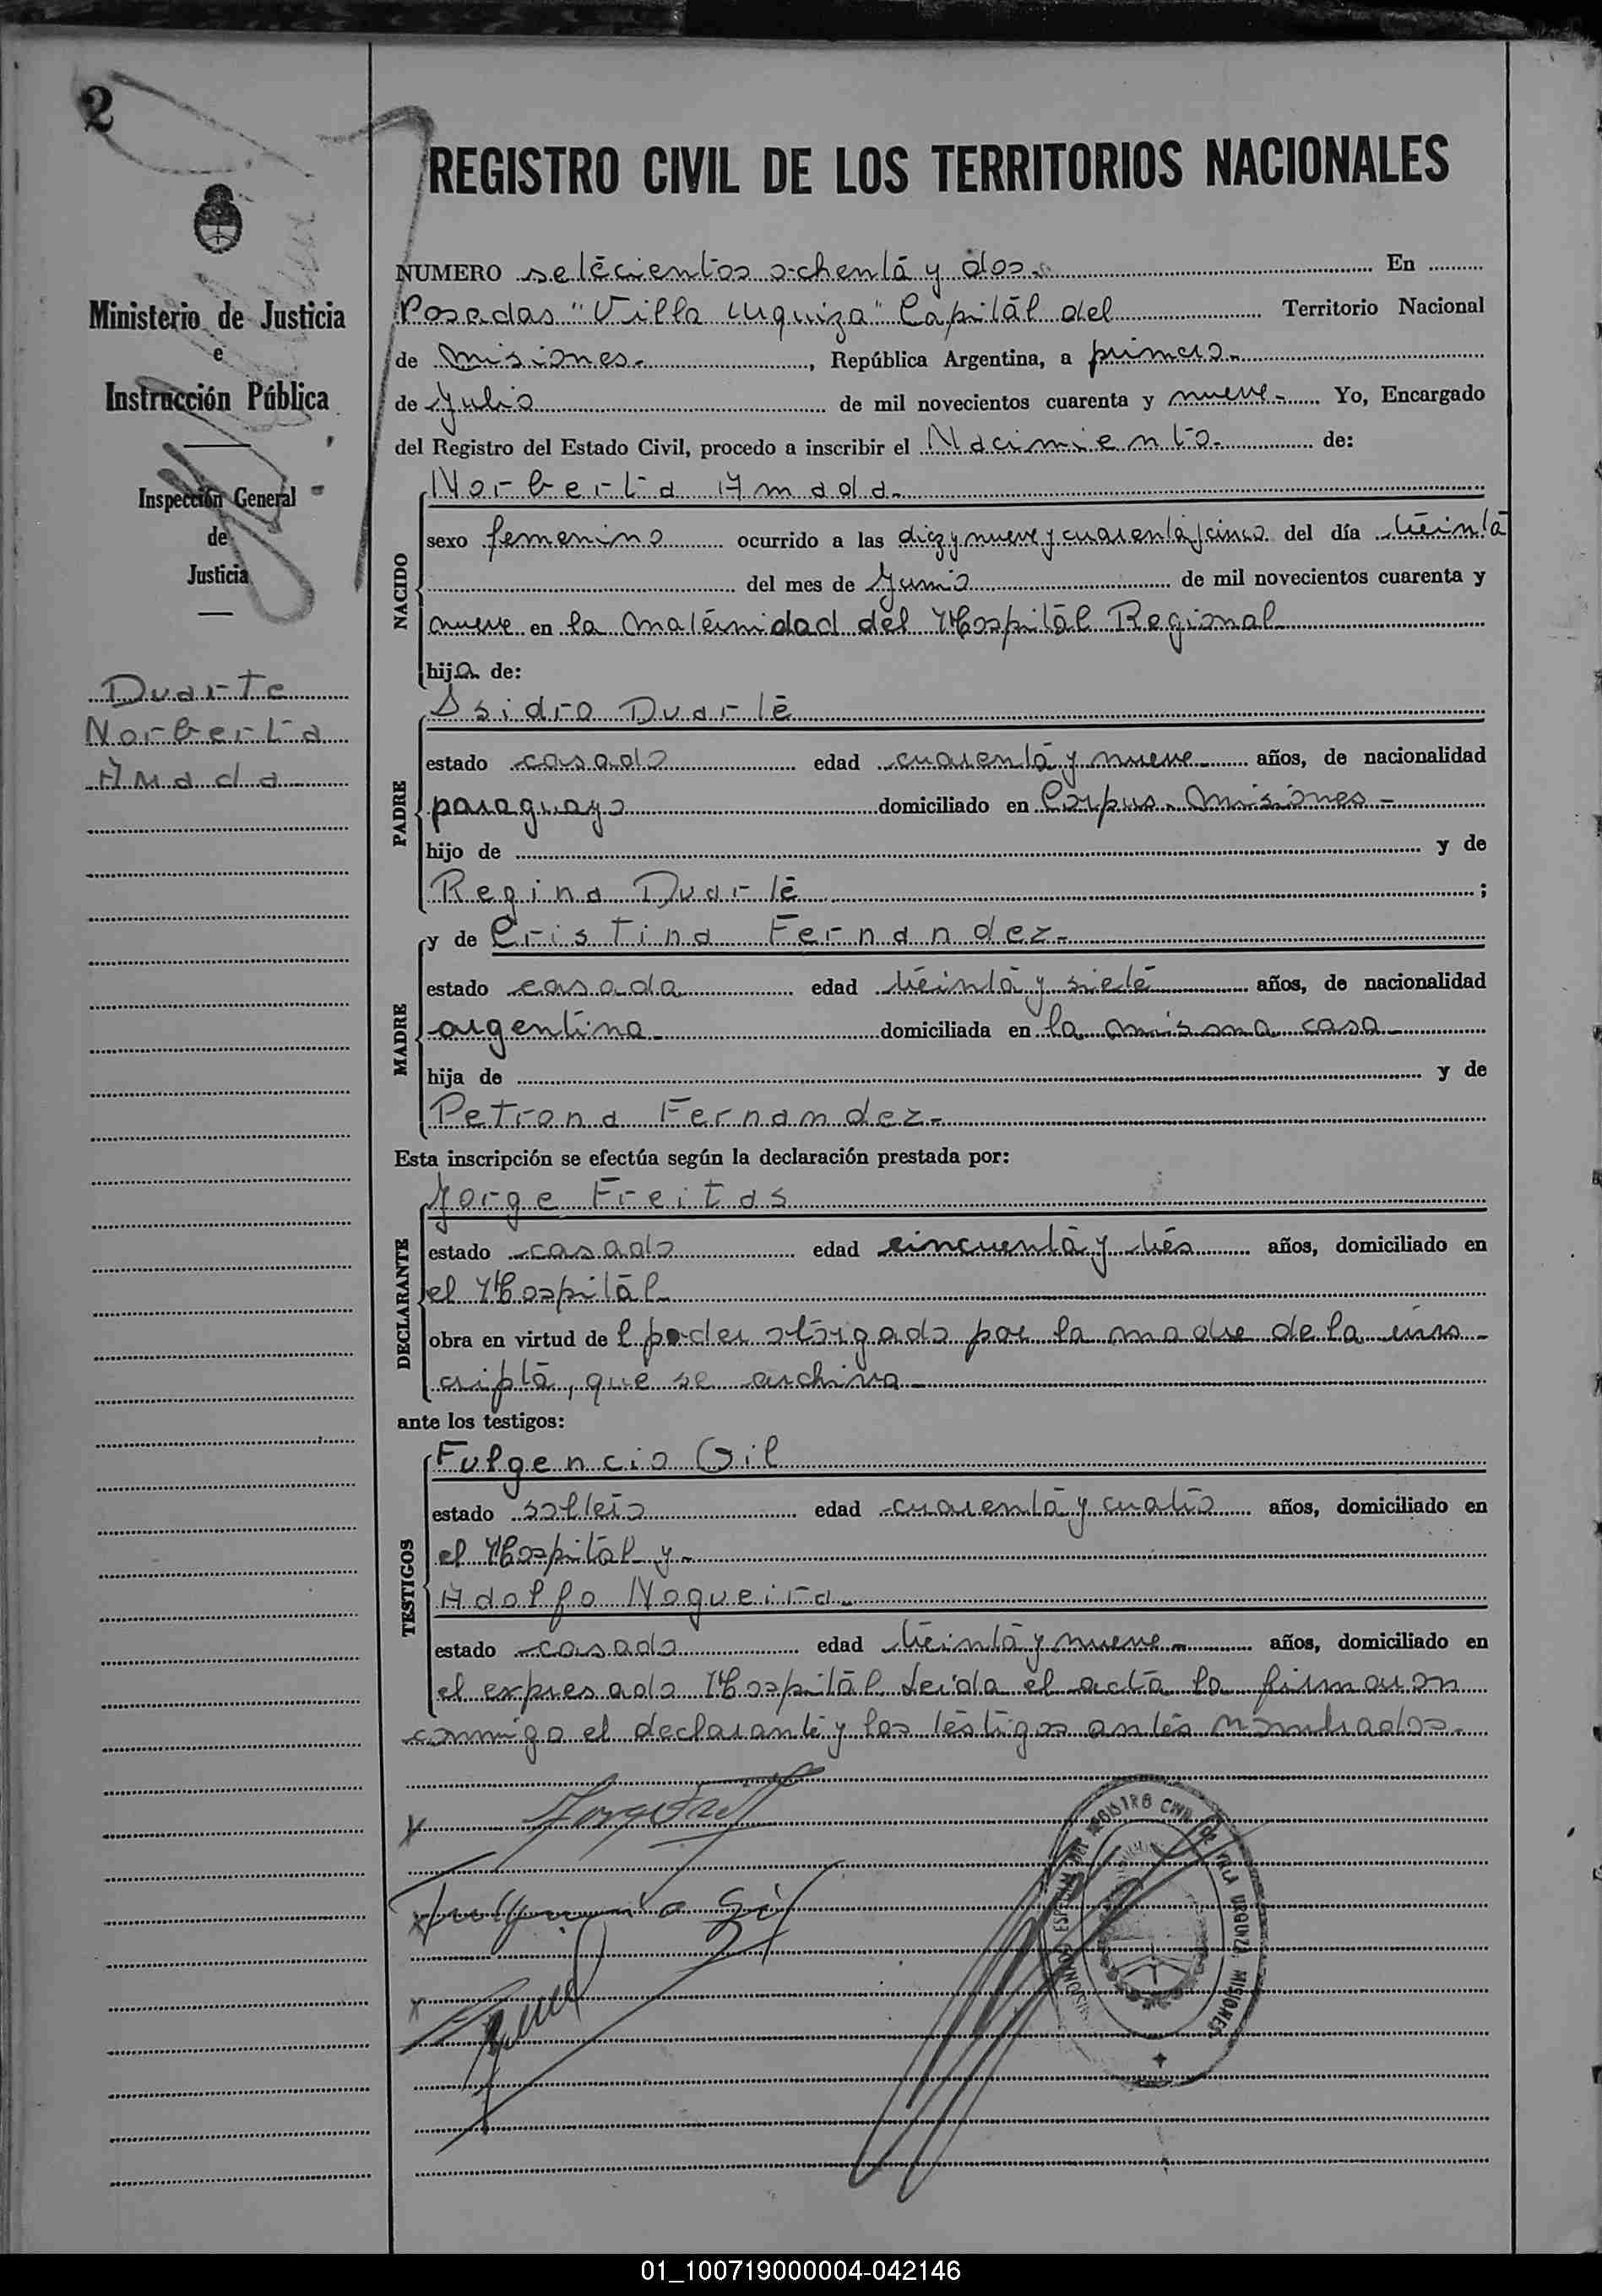 2
Ministerio de Justicia
e
Instrucción Pública
Inspección General
de
Justicia
Duarte
Norberta
Amada
REGISTRO CIVIL DE LOS TERRITORIOS NACIONALES
NUMERO setecientos ochenta y dos. En
Posadas "Villa Urquiza" Capital del Territorio Nacional
de Misiones-, República Argentina, a primero-
de Julio de mil novecientos cuarenta y nueve- Yo, Encargado
del Registro del Estado Civil, procedo a inscribir el Nacimiento- de:
NACIDO
Norberta Amada-
sexo femenino ocurrido a las diez y nueve y cuarenta y cinco del día treinta
del mes de Junio de mil novecientos cuarenta y
nueve en la maternidad del Hospital Regional
hija de:
PADRE
Isidro Duarte
estado casado edad cuarenta y nueve- años, de nacionalidad
paraguayo domiciliado en Corpus- Misiones-
hijo de y de
Regina Duarte ;
MADRE
y de Cristina Fernandez-
estado casada edad treinta y siete años, de nacionalidad
argentina- domiciliada en la misma casa-
hija de y de
Petrona Fernandez-
Esta inscripción se efectúa según la declaración prestada por:
DECLARANTE
Jorge Freitas
estado casado edad cincuenta y tres años, domiciliado en
el Hospital-
obra en virtud de l poder otorgado por la madre de la ins-
cripta, que se archiva-
ante los testigos:
TESTIGOS
Fulgencio Gil
estado soltero edad cuarenta y cuatro años, domiciliado en
el Hospital y-
Adolfo Nogueira-
estado casado edad treinta y nueve- años, domiciliado en
el expresado Hospital Leida el acta la firmaron
conmigo el declarante y los testigos antes nombrados-
Fulgencio Gil
REGISTRO CIVIL DE VILLA URQUIZA MISIONES
01_100719000004-042146